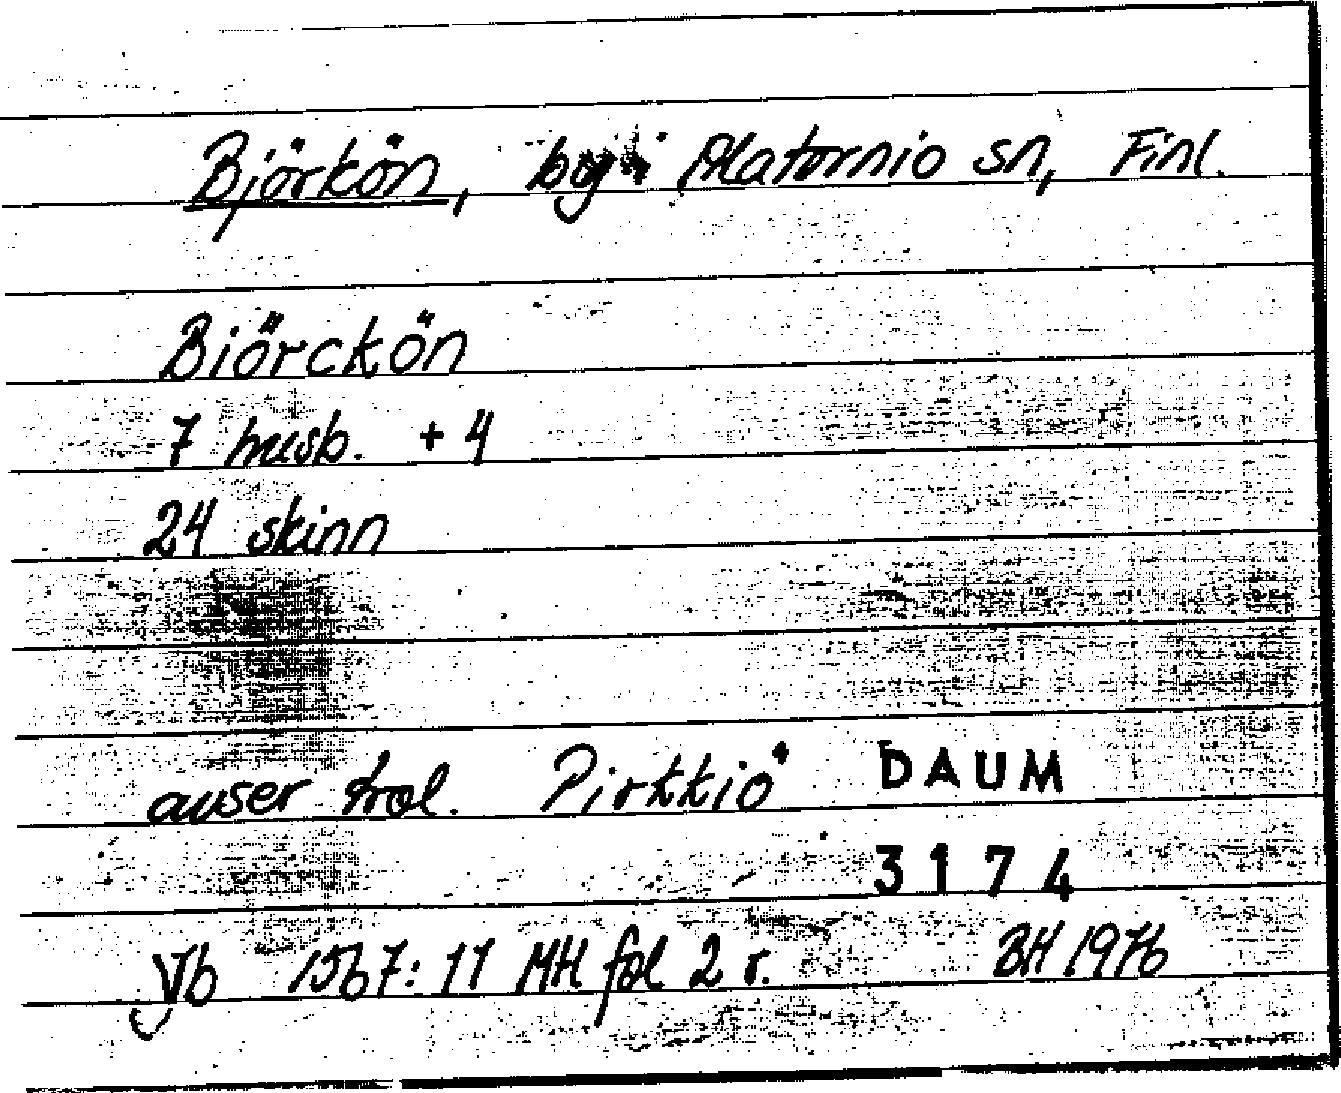 Björkön, by i Alatornio sn, Finl.
Biörckön
7 husb. + 4
24 skinn
avser trol. Pirkkiö
DAUM
3174
Vb 1567:11 MH fol 2 r.
BH 1976